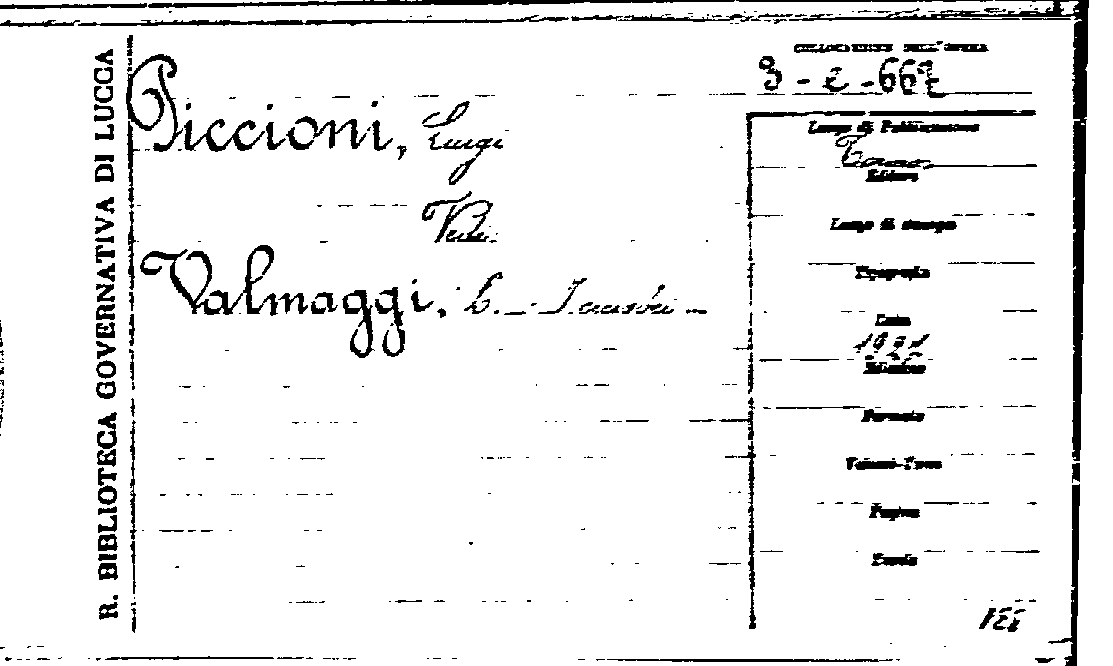 R. BIBLIOTECA GOVERNATIVA DI LUCCA
COLLOCAZIONE DELL'OPERA
3 - 2 - 667
Piccioni, Luigi
Vedi
Valmaggi, L. -
Luogo di Pubblicazione
Torino
Editore
Luogo di stampa
Tipografia
Data
1921
Edizione
Formato
Volumi-Tomi
Pagine
Tavole